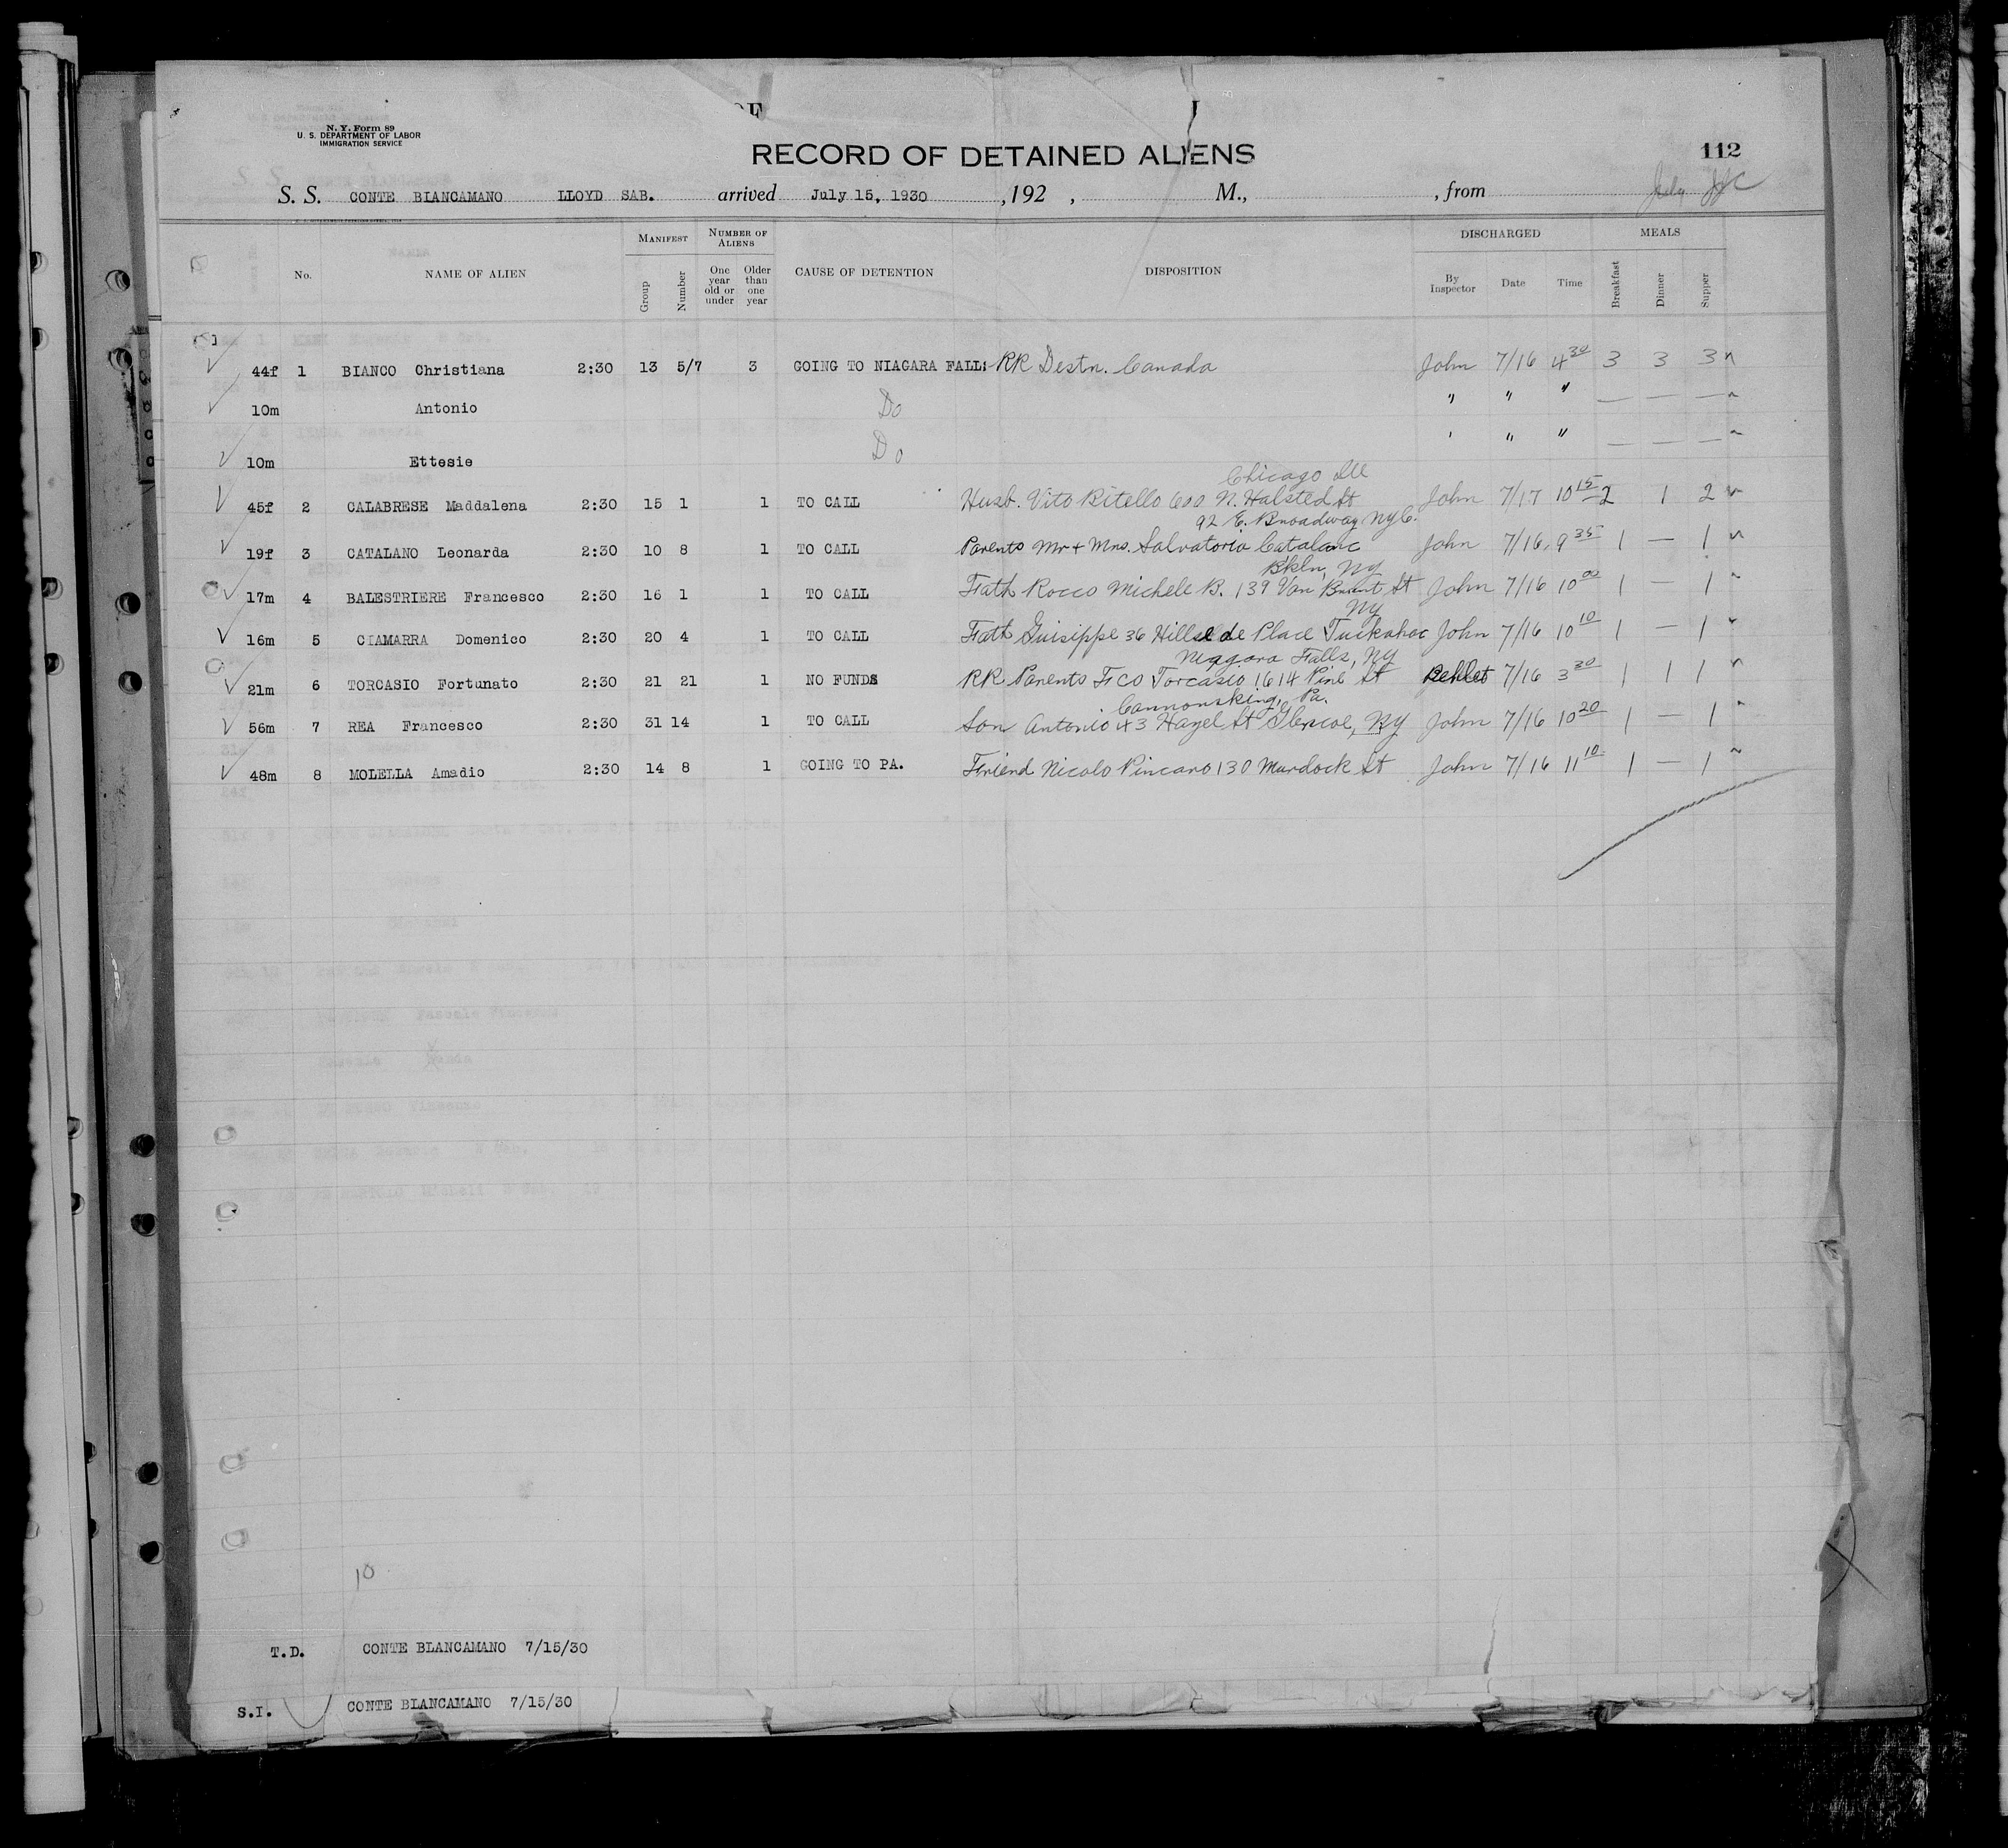 N. Y. Form 89
U. S. DEPARTMENT OF LABOR
IMMIGRATION SERVICE
RECORD OF DETAINED ALIENS
112
S. S. CONTE BIANCAMANO LLOYD SAB. arrived July 15, 1930 , 192 , M., , from
No. NAME OF ALIEN MANIFEST Group Number NUMBER OF ALIENS One year old or under Older than one year CAUSE OF DETENTION DISPOSITION DISCHARGED By Inspector Date Time MEALS Breakfast Dinner Supper
44f 1 BIANCO Christiana 2:30 13 5/7 3 GOING TO NIAGARA FALLS RR Destn. Canada John 7/16 4 30 3 3 3
10m Antonio Do " " " — — —
10m Ettesie Do ' " " — — —
Chicago Ill
45f 2 CALABRESE Maddalena 2:30 15 1 1 TO CALL Husb. Vito Ritello 600 N. Halsted St John 7/17 10 15 2 1 2
92 E. Broadway NyC.
19f 3 CATALANO Leonarda 2:30 10 8 1 TO CALL Parents Mr + Mrs. Salvatoria Catalano John 7/16 9 35 1 — 1
Bkln, Ny
17m 4 BALESTRIERE Francesco 2:30 16 1 1 TO CALL Fath Rocco Michele B. 139 Van Brunt St John 7/16 10 00 1 — 1
Ny
16m 5 CIAMARRA Domenico 2:30 20 4 1 TO CALL Fath Guisippe 36 Hillside Place Tuckahoe John 7/16 10 10 1 — 1
Niagara Falls, Ny
21m 6 TORCASIO Fortunato 2:30 21 21 1 NO FUNDS RR Parents Fco Torcasio 1614 Pine St 7/16 3 30 1 1 1
56m 7 REA Francesco 2:30 31 14 1 TO CALL Son Antonio 43 Hazel St Glencoe, Ny John 7/16 10 20 1 — 1
Pa.
48m 8 MOLELLA Amadio 2:30 14 8 1 GOING TO PA. Friend Nicolo Pincaro 130 Murdock St John 7/16 11 10 1 — 1
10
T.D. CONTE BIANCAMANO 7/15/30
S.I. CONTE BIANCAMANO 7/15/30